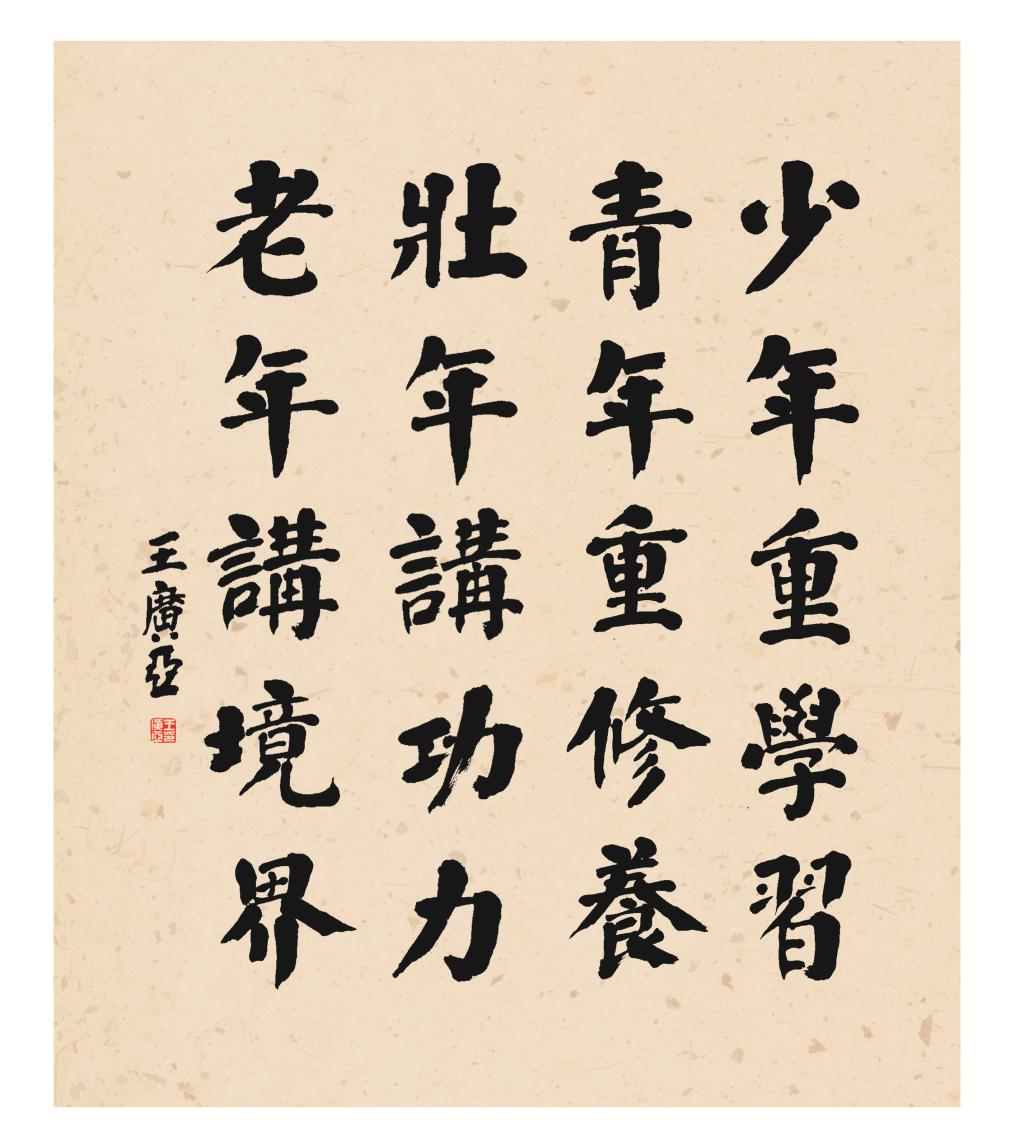 少年重學習
青年重修養
壯年講功力
老年講境界
王廣亞